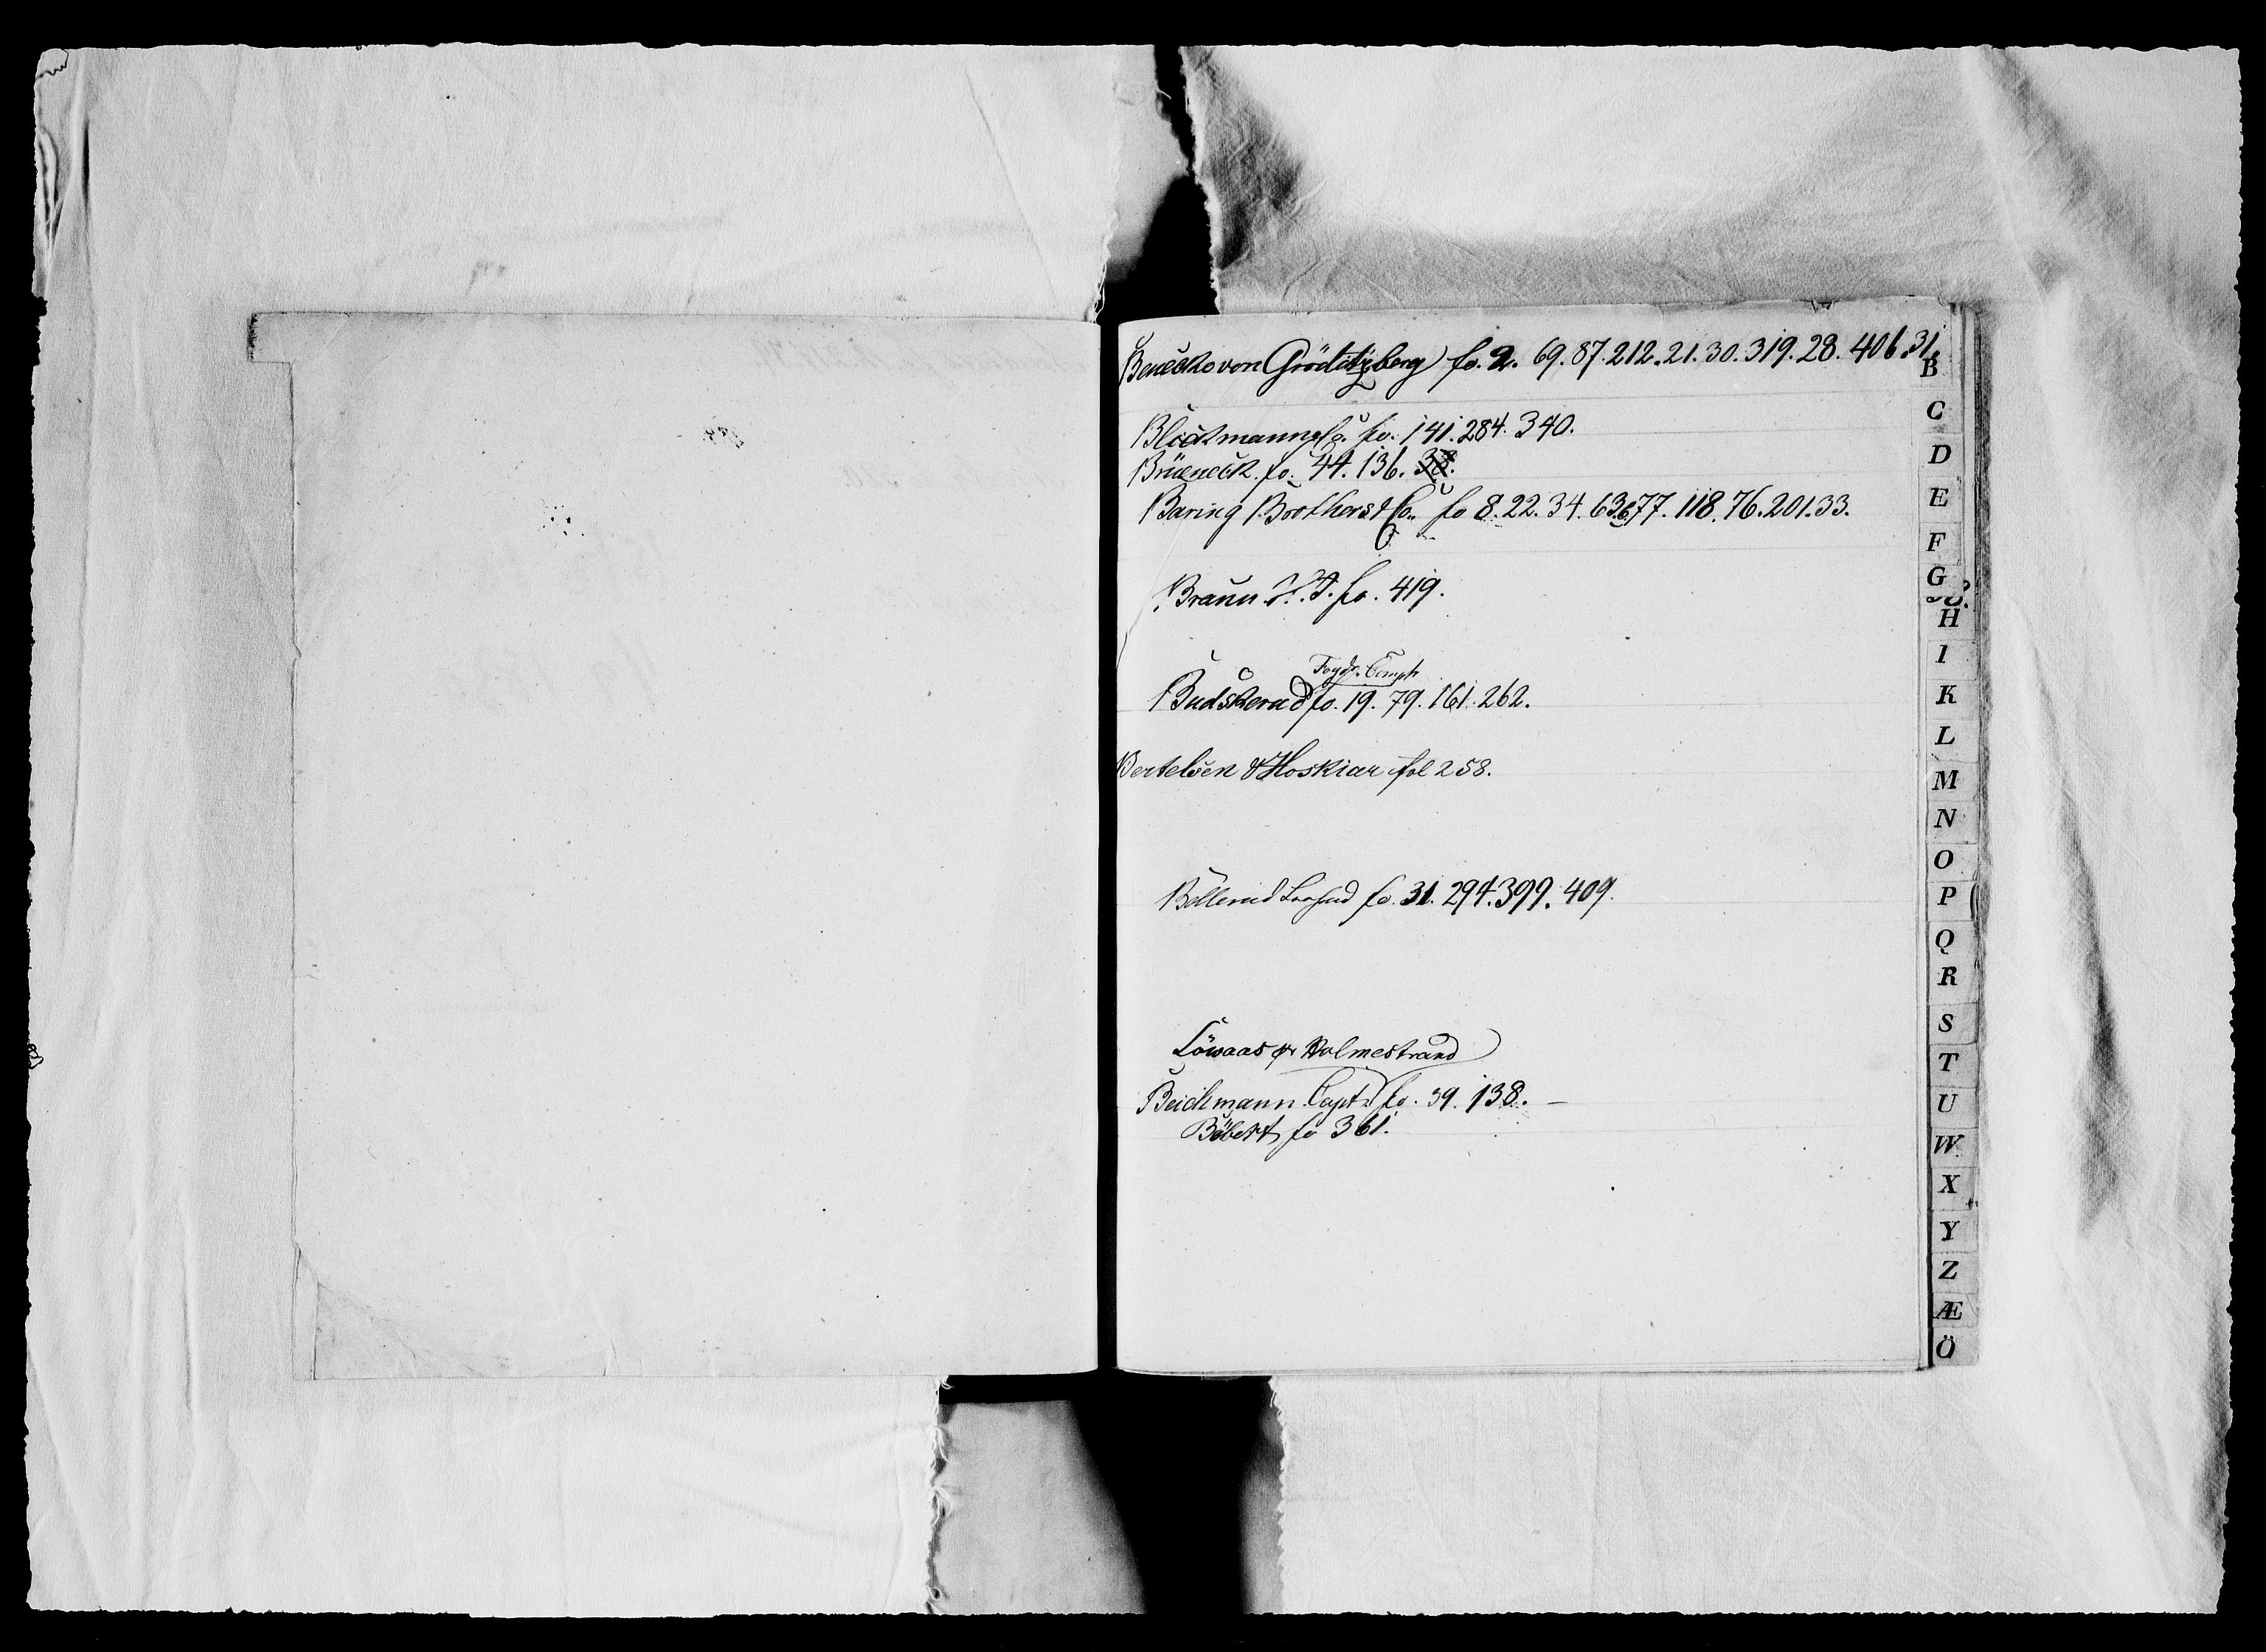 Benecke von Gröditzberg fo. 2. 69. 87. 212. 21. 30. 319. 28. 406. 31.
Blickmann & Co. fo. 141. 284. 340.
Brüeneck. fo. 44. 136. 38.
Baring Brothers & Co. fo 8. 22. 34. 63. 6. 77. 118. 76. 201. 33.
Braun fo. 419.
Fogdr. Compt
Budskerud fo. 19. 79. 161. 262.
Bertelsen & Hoskiar fol 258.
fo. 31. 294. 399. 409.
Löwaas pr Holmestrand
Beichmann Capt. fo. 39. 138. —
Böbert fo 361.
B
C
D
E
F
G
H
I
K
L
M
N
O
P
Q
R
S
T
U
W
X
Y
Z
Æ
Ö